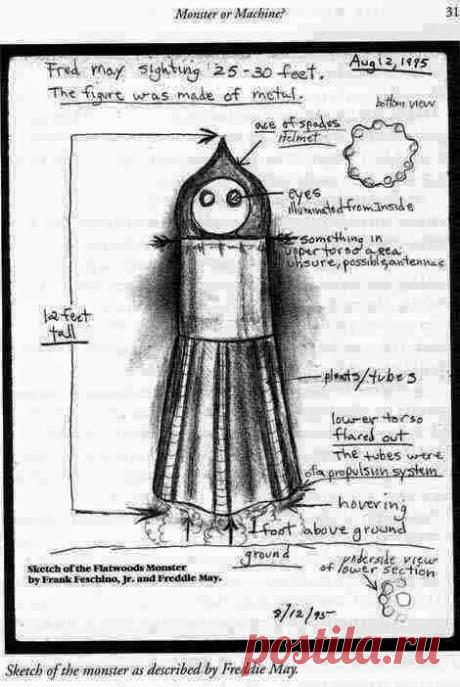 Monster or Machine?
31
Fred may sighting '25-30 feet.
Aug 12, 1995
The figure was made of metal.
bottom view
ace of spades
Helmet
eyes
illuminated from Inside
something in
upper torso area
unsure, possible, antennas
12 feet
tall
pleats/tubes
lower torso
flared out
The tubes were
of a propulsion system
hovering
1 foot above ground
ground
underside view
of lower section
Sketch of the Flatwoods Monster
by Frank Feschino, Jr. and Freddie May.
8/12/95
postila.ru
Sketch of the monster as described by Freddie May.